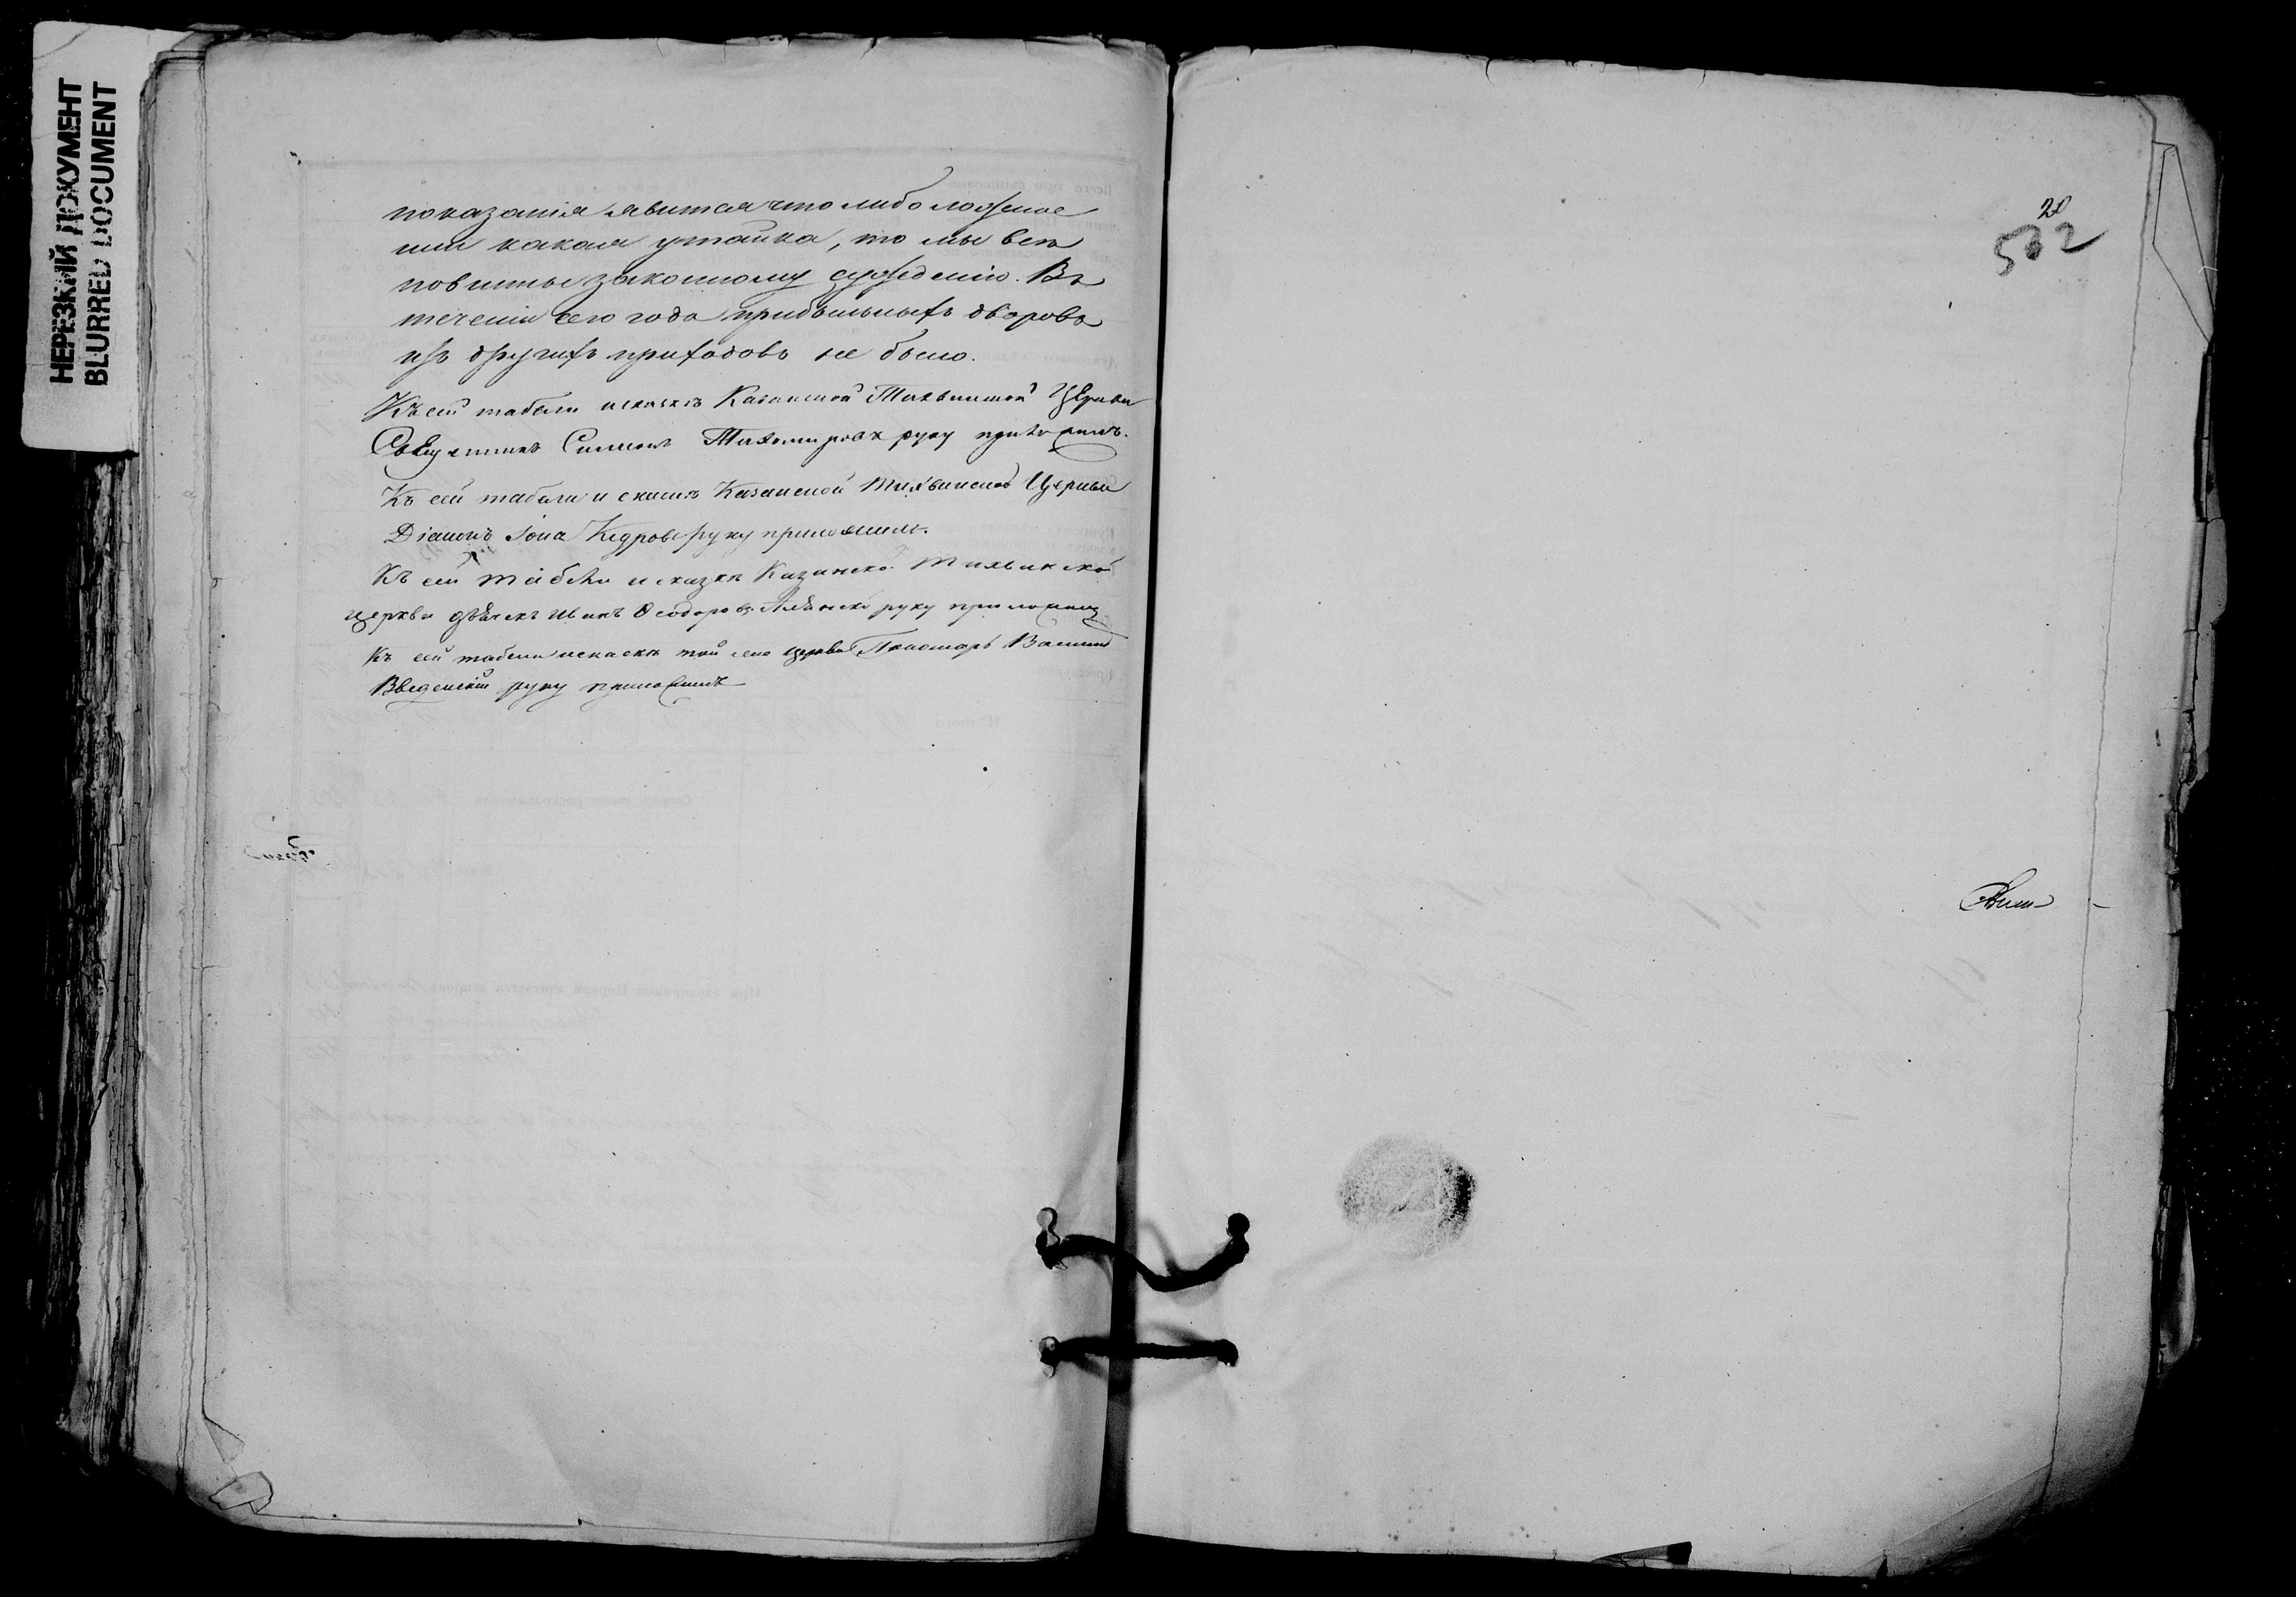 НЕРЕЗКИЙ ДОКУМЕНТ
BLURRED DOCUMENT
показанія явится что либо ложное
или какая утайка, то мы всѣ
повинны законному сужденію. Въ
теченіи сего года прибыльныхъ дворовъ
изъ другихъ приходовъ не было.
Къ сей табели и сказкѣ Казанской Тихвинской Церкви
Священникъ Симеонъ Тихомировъ руку приложилъ.
Къ сей табели и сказкѣ Казанской Тихвинской Церкви
Діаконъ Іона Кедровъ руку приложилъ.
Къ сей табели и сказкѣ Казанской Тихвинской
церкви дьячекъ Иванъ Ѳеодоровъ руку приложилъ
Къ сей табели и сказкѣ той же церкви Пономарь Василій
Введенскій руку приложилъ
20
502